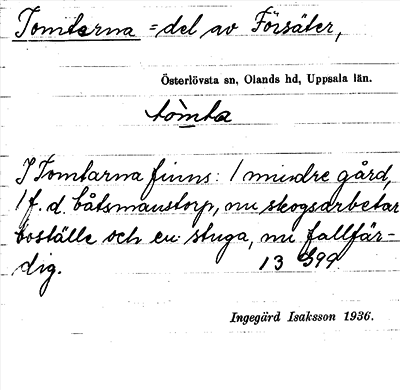 Tomterna = del av Försäter,
Österlövsta sn, Olands hd, Uppsala län.
tòmta
I Tomtarna finns: 1 mindre gård,
1 f. d. båtsmanstorp, nu skogsarbetar
boställe och en stuga, nu fallfär-
dig. 13 G99
Ingegärd Isaksson 1936.